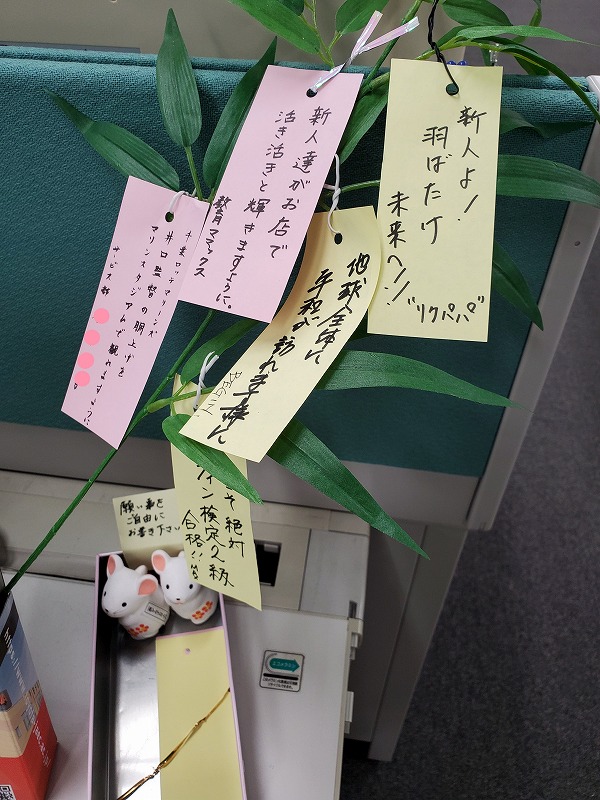 新人よ!
羽ばたけ
未来へ!!
"リクパパ"
新人達がお店で
活き活きと輝きますように。
千葉ロッテマリーンズ
井口監督の胴上げを
マリンスタジアムで観れますように
サービス部
地球全体に
平和が訪れます様に
そ絶対
イン検定2級
合格!!
願い事を
ご自由に
お書き下さい